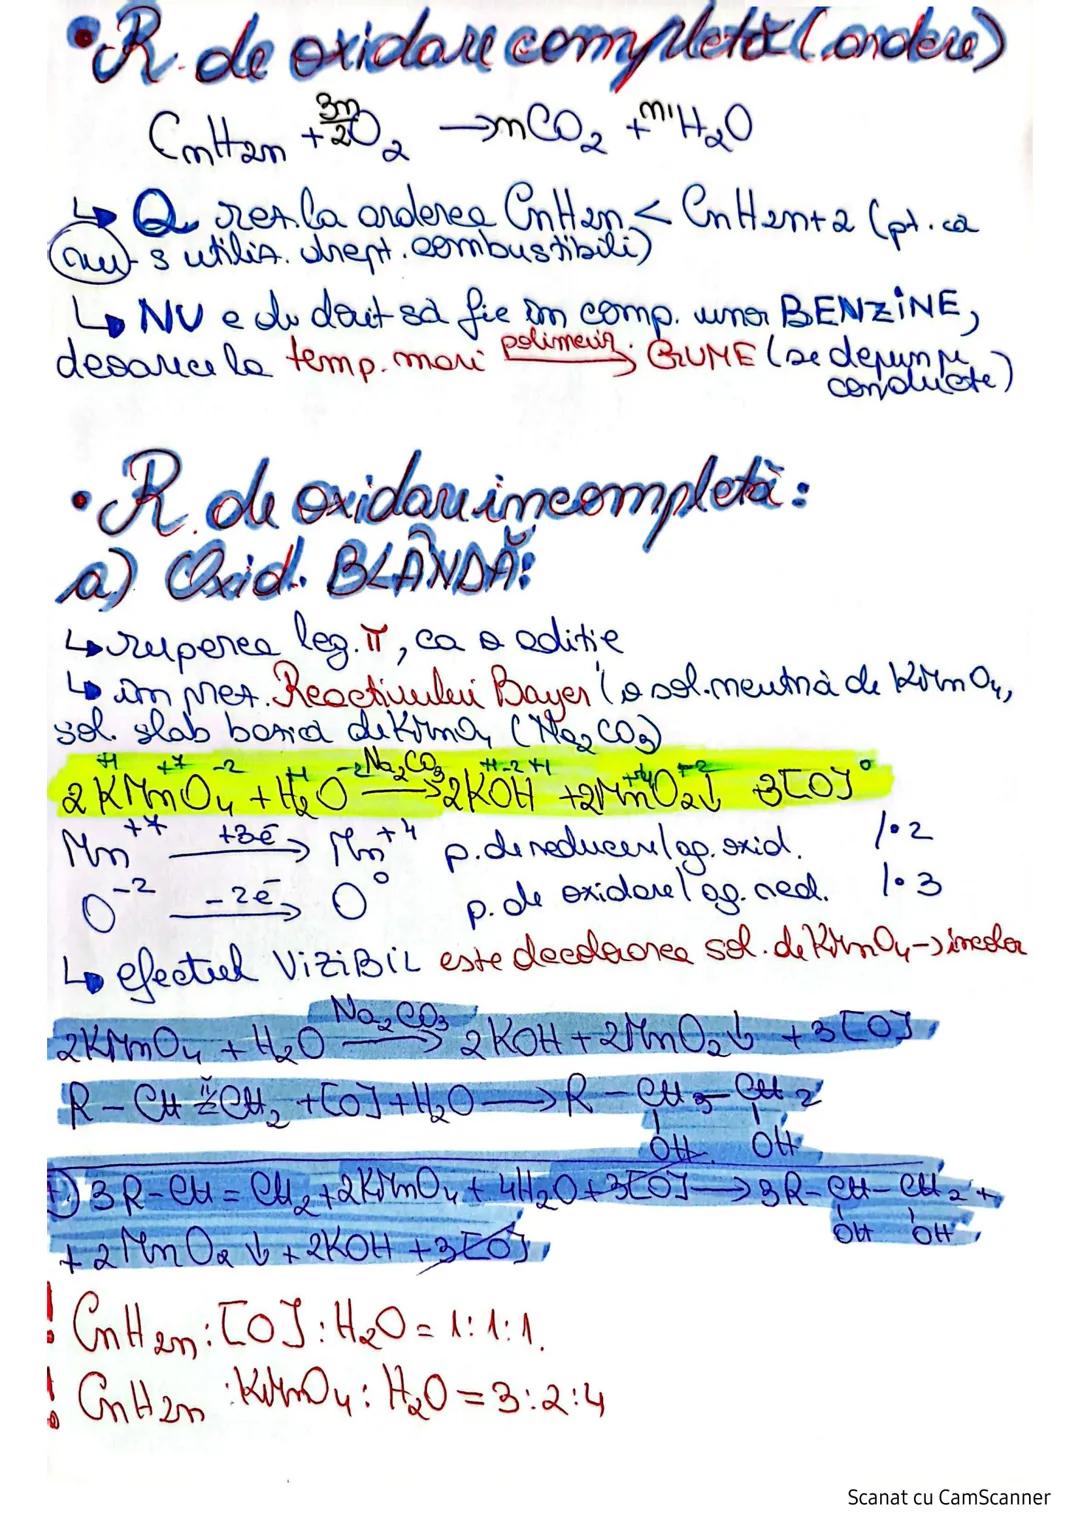 • R. de oxidare completă (ardere)
CnH2n + 3n/2 O2 → nCO2 + nH2O
↳ Q rez. la arderea CnH2n < CnH2n+2 (pt. că
nu-s utiliz. drept. combustibili)
↳ NU e de dorit să fie în comp. unor BENZiNE,
deoarece la temp. mari polimeriz. → GUME (se depun pe
conducte)
• R. de oxidare incompletă:
a) Oxid. BLÂNDĂ:
↳ ruperea leg. π, ca o adiție
↳ în prez. Reactivului Bayer (o sol. neutră de KMnO4,
sol. slab bazică de KMnO4 (Na2CO3)
+1 +7 -2 +1 -2 Na2CO3 +1 -2 +1 +4 -2 0
2KMnO4 + H2O → 2KOH + 2MnO2↓ 3[O]
Mn+7 +3ē → Mn+4 p. de reducere/ag. oxid. /·2
O-2 -2ē → O0 p. de oxidare/ag. red. /·3
↳ efectul ViZiBiL este decolorarea sol. de KMnO4 → incolor
Na2CO3
2KMnO4 + H2O → 2KOH + 2MnO2↓ + 3[O]
R - CH = CH2 + [O] + H2O → R - CH - CH2
OH OH
+) 3R-CH = CH2 + 2KMnO4 + 4H2O + 3[O] → 3R-CH-CH2 +
OH OH
+ 2MnO2↓ + 2KOH + 3[O]
! CnH2n : [O] : H2O = 1:1:1.
! CnH2n : KMnO4 : H2O = 3:2:4
Scanat cu CamScanner